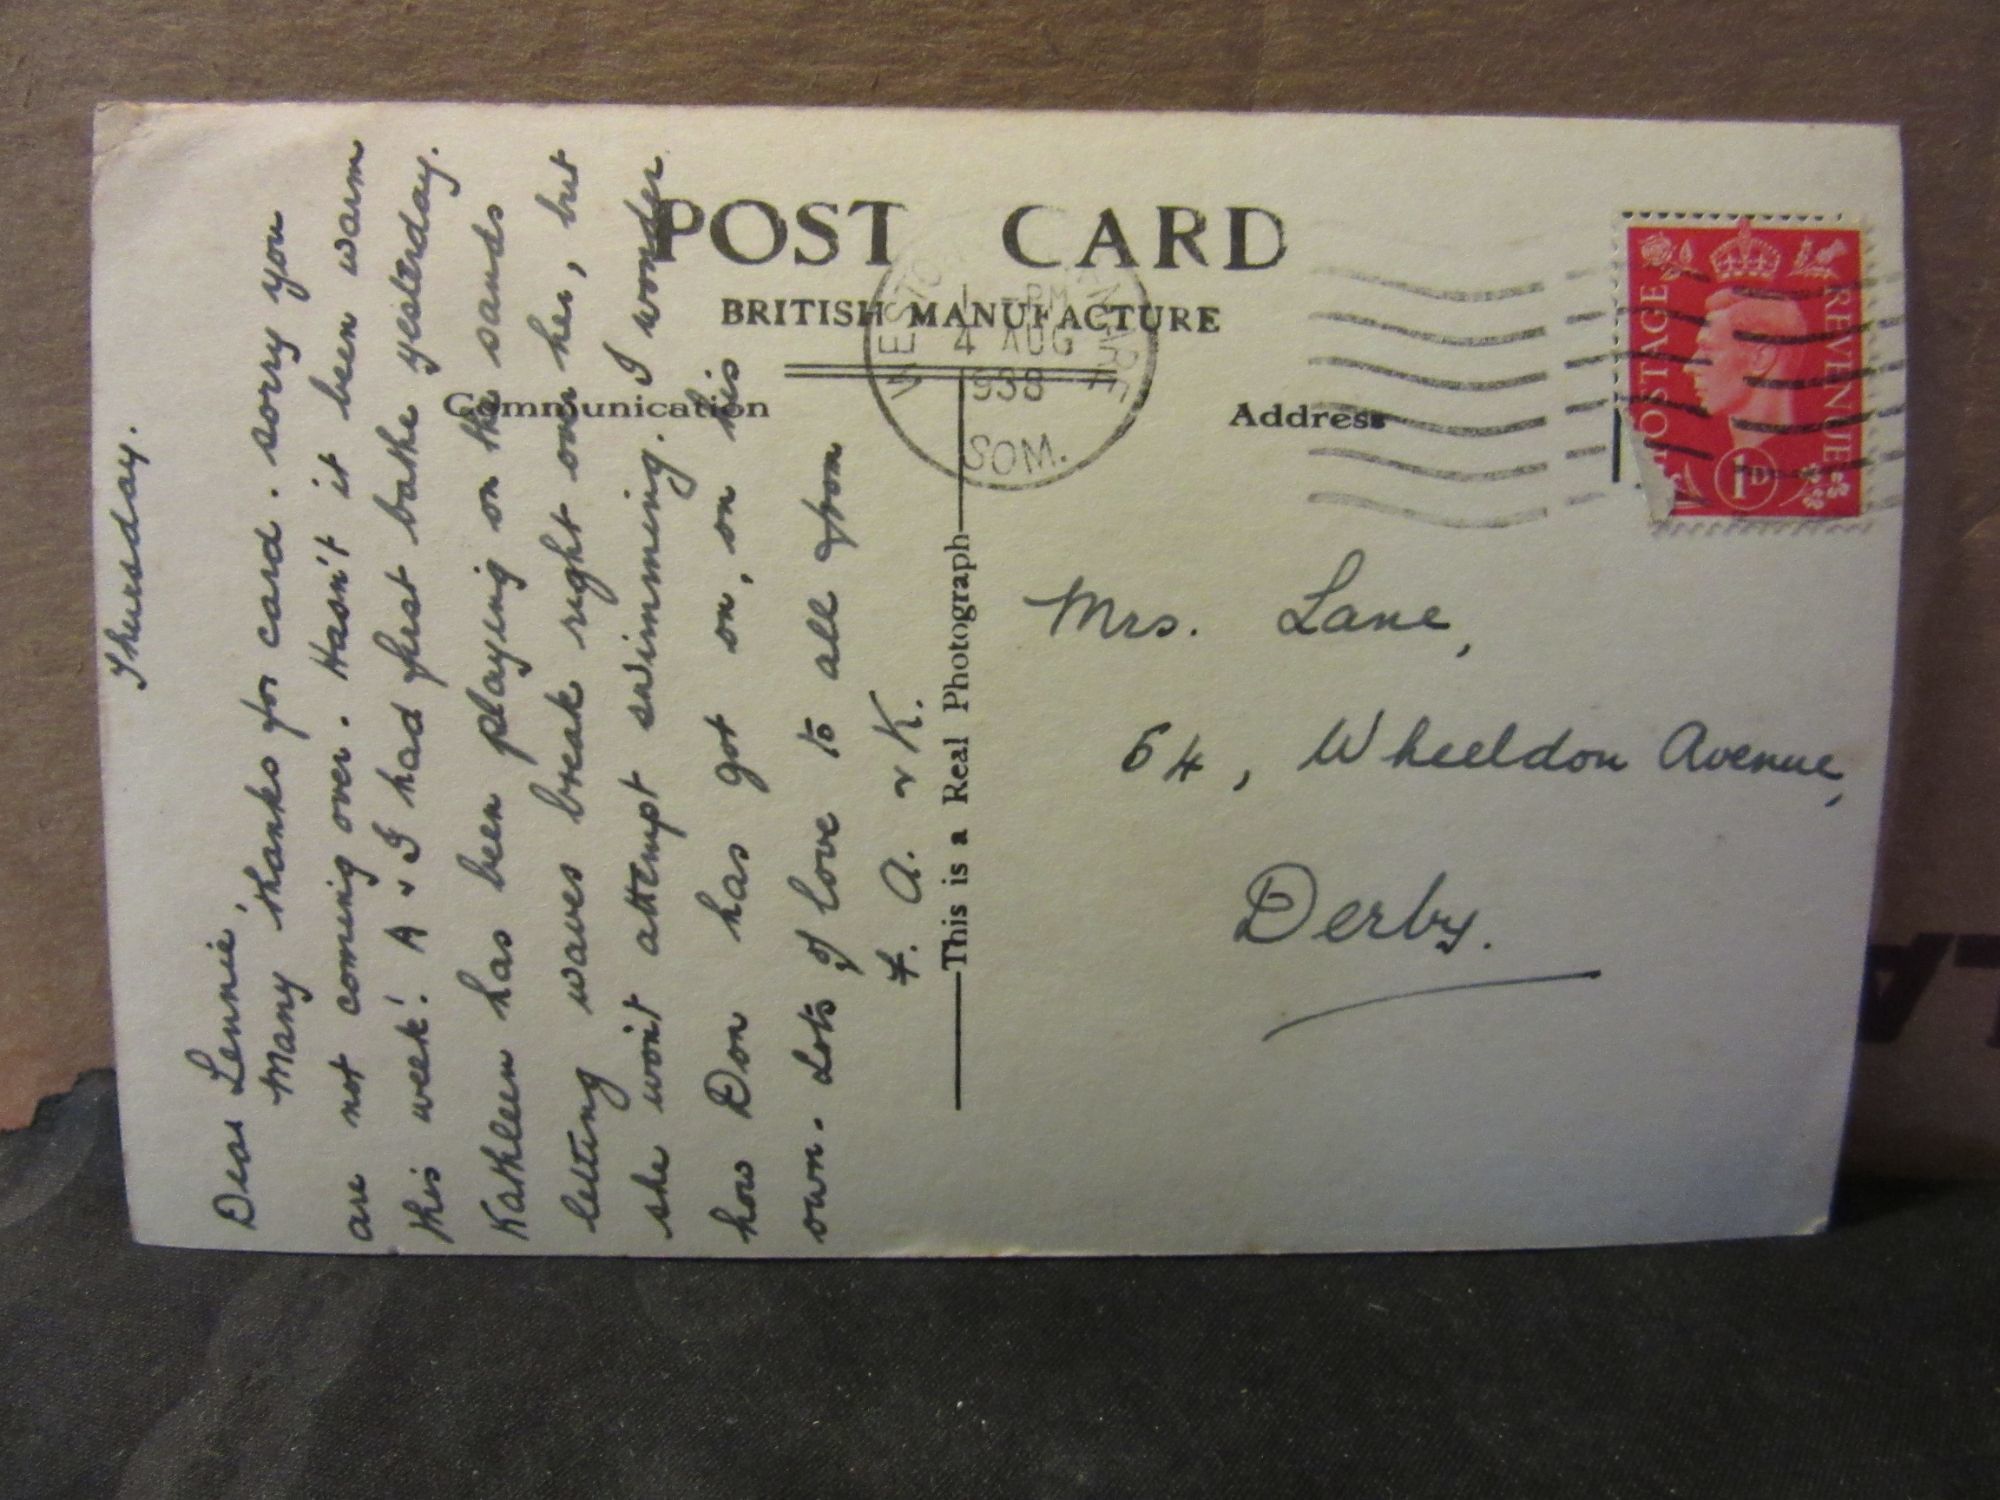 POST CARD
BRITISH MANUFACTURE
Communication
Address
This is a Real Photograph
Thursday.
Dear Lennie,
Many thanks for card. sorry you
are not coming over. Hasn't it been warm
this week! A & I had first bathe yesterday.
Kathleen has been playing on the sands
letting waves break right over her, but
she won't attempt swimming. I wonder
how Don has got on, on his
own. Lots of love to all from
F. A. & K.
1 - PM
4 AUG
1938
SOM.
POSTAGE
REVENUE
1D
Mrs. Lane,
64, Wheeldon Avenue,
Derby.